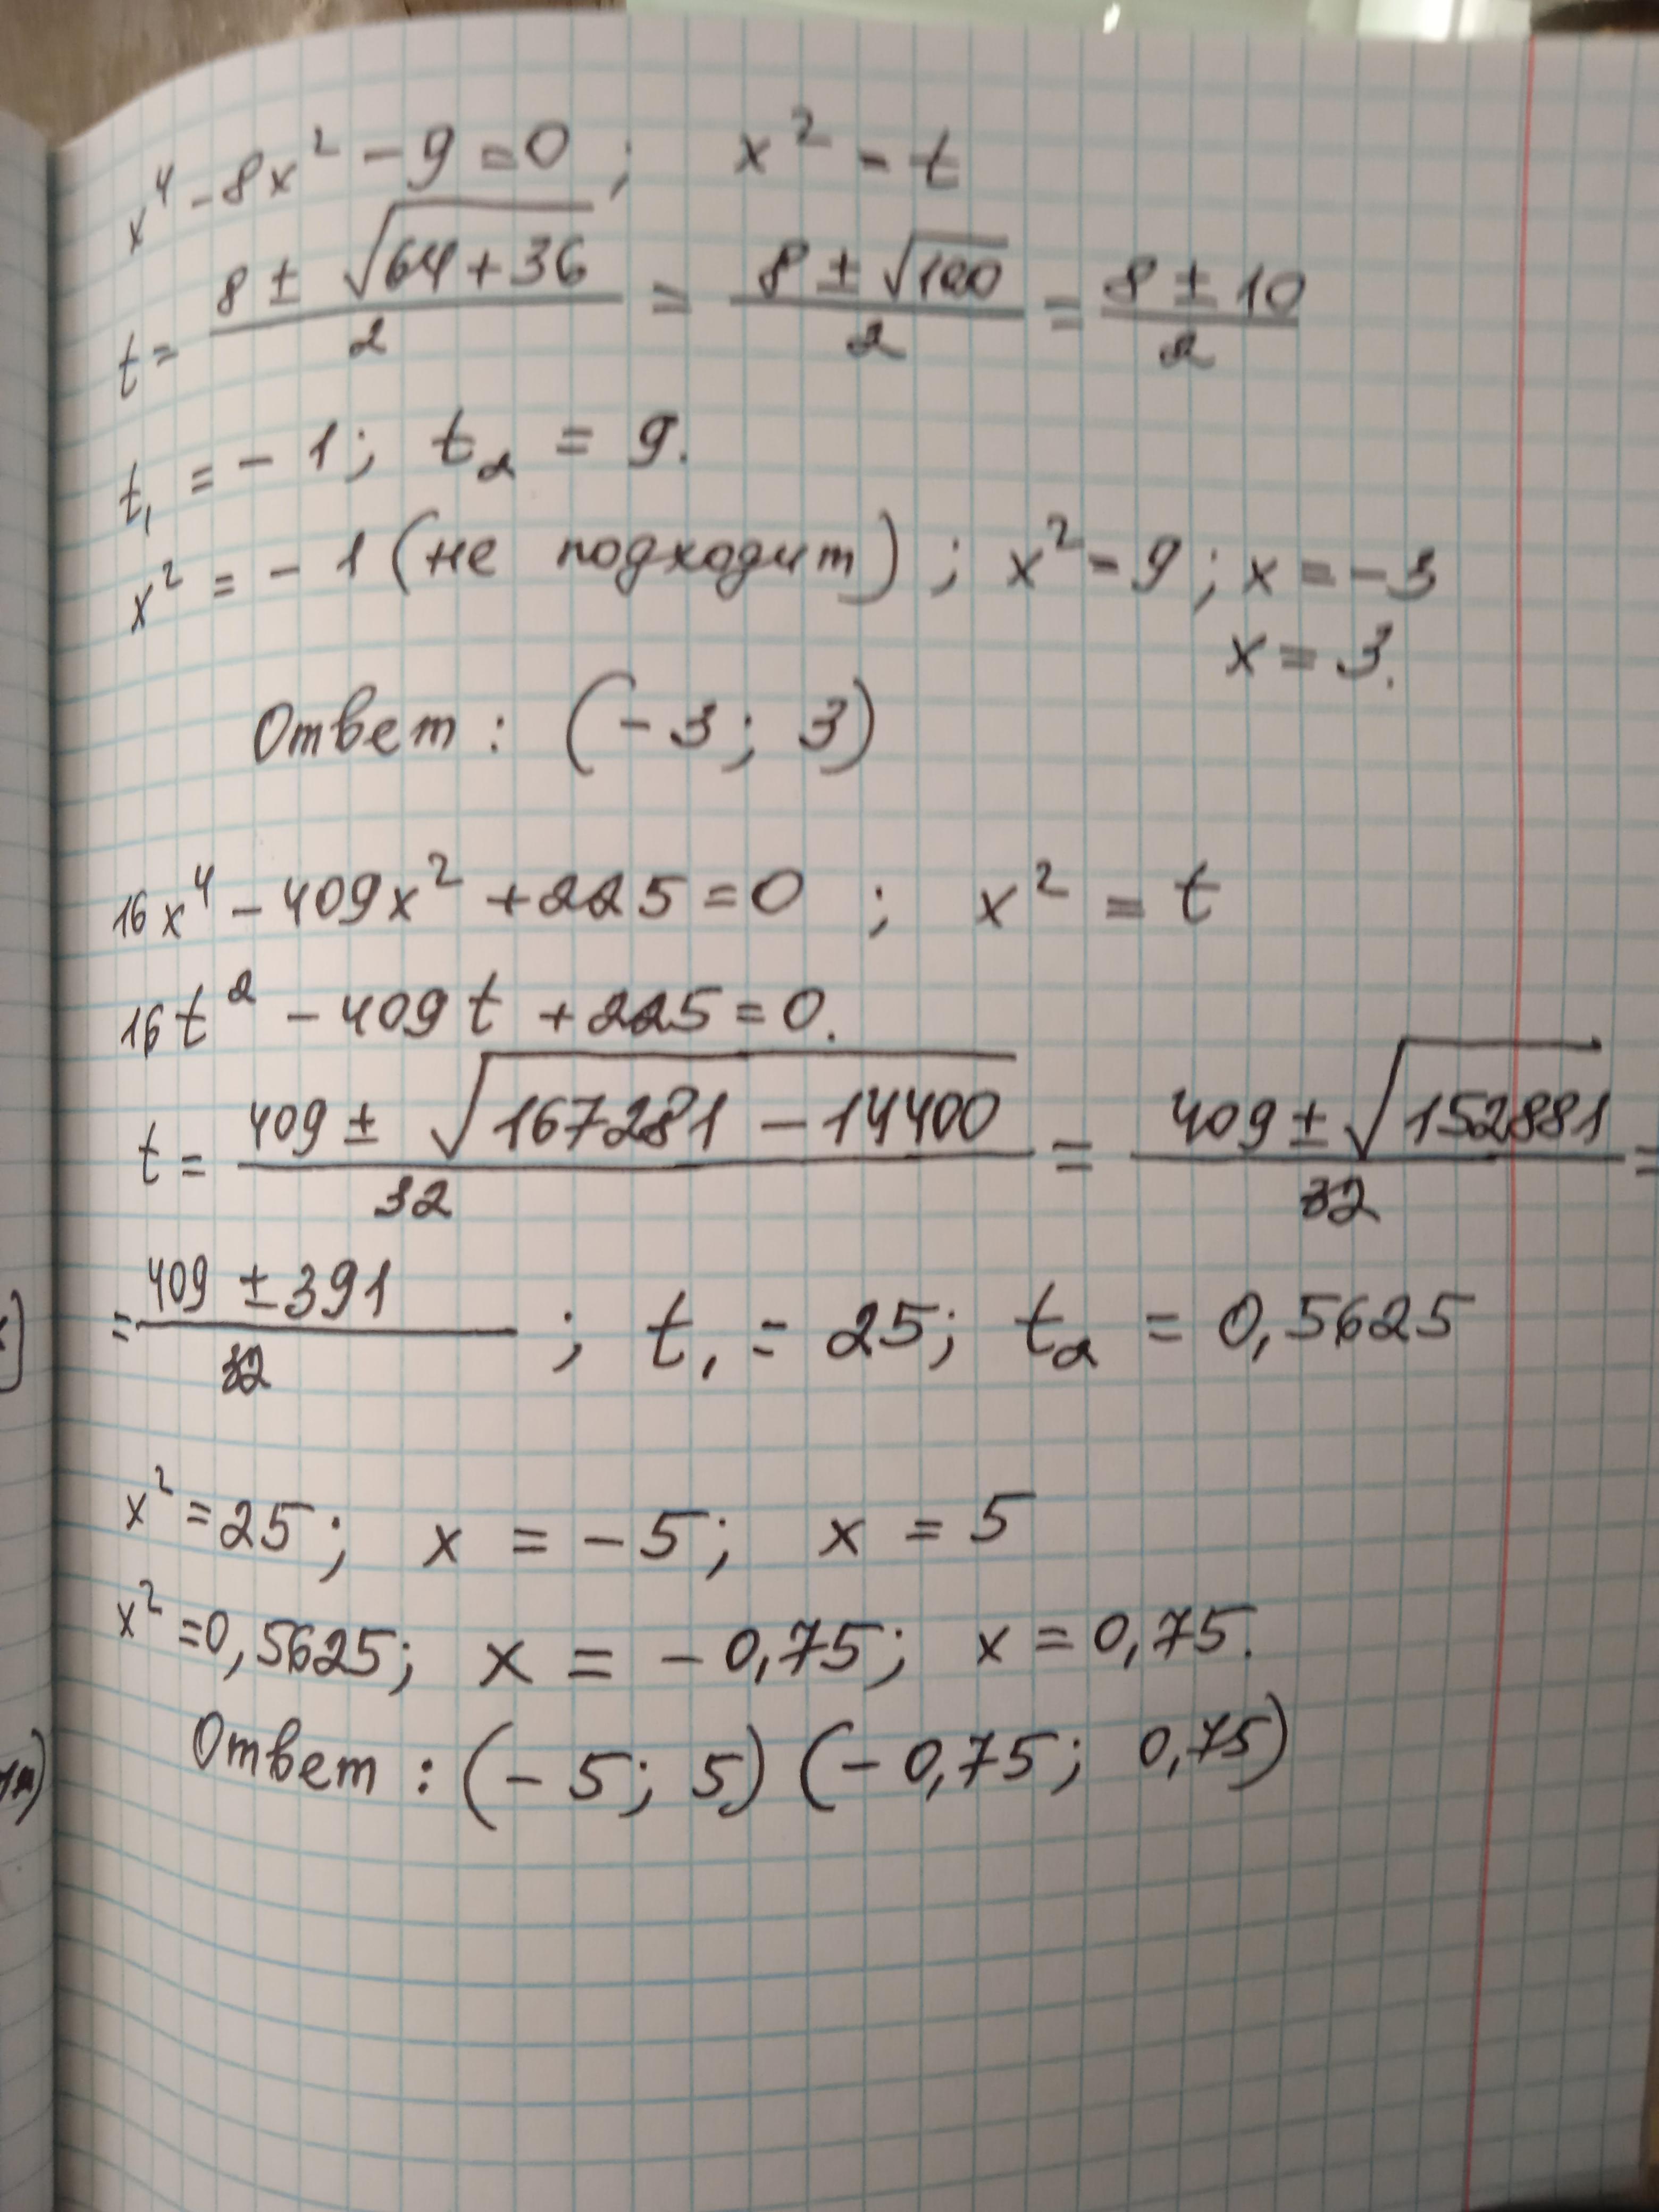 x⁴ - 8x² - 9 = 0 ; x² = t
t = (8 ± √(64 + 36))/2 = (8 ± √100)/2 = (8 ± 10)/2
t₁ = - 1; t₂ = 9.
x² = - 1 (не подходит) ; x² = 9 ; x = - 3
x = 3.
Ответ : (- 3; 3)
16x⁴ - 409x² + 225 = 0 ; x² = t
16t² - 409t + 225 = 0.
t = (409 ± √(167281 - 14400))/32 = (409 ± √152881)/32 =
= (409 ± 391)/32 ; t₁ = 25; t₂ = 0,5625
x² = 25; x = - 5; x = 5
x² = 0,5625; x = - 0,75; x = 0,75.
Ответ : (- 5; 5) (- 0,75; 0,75)